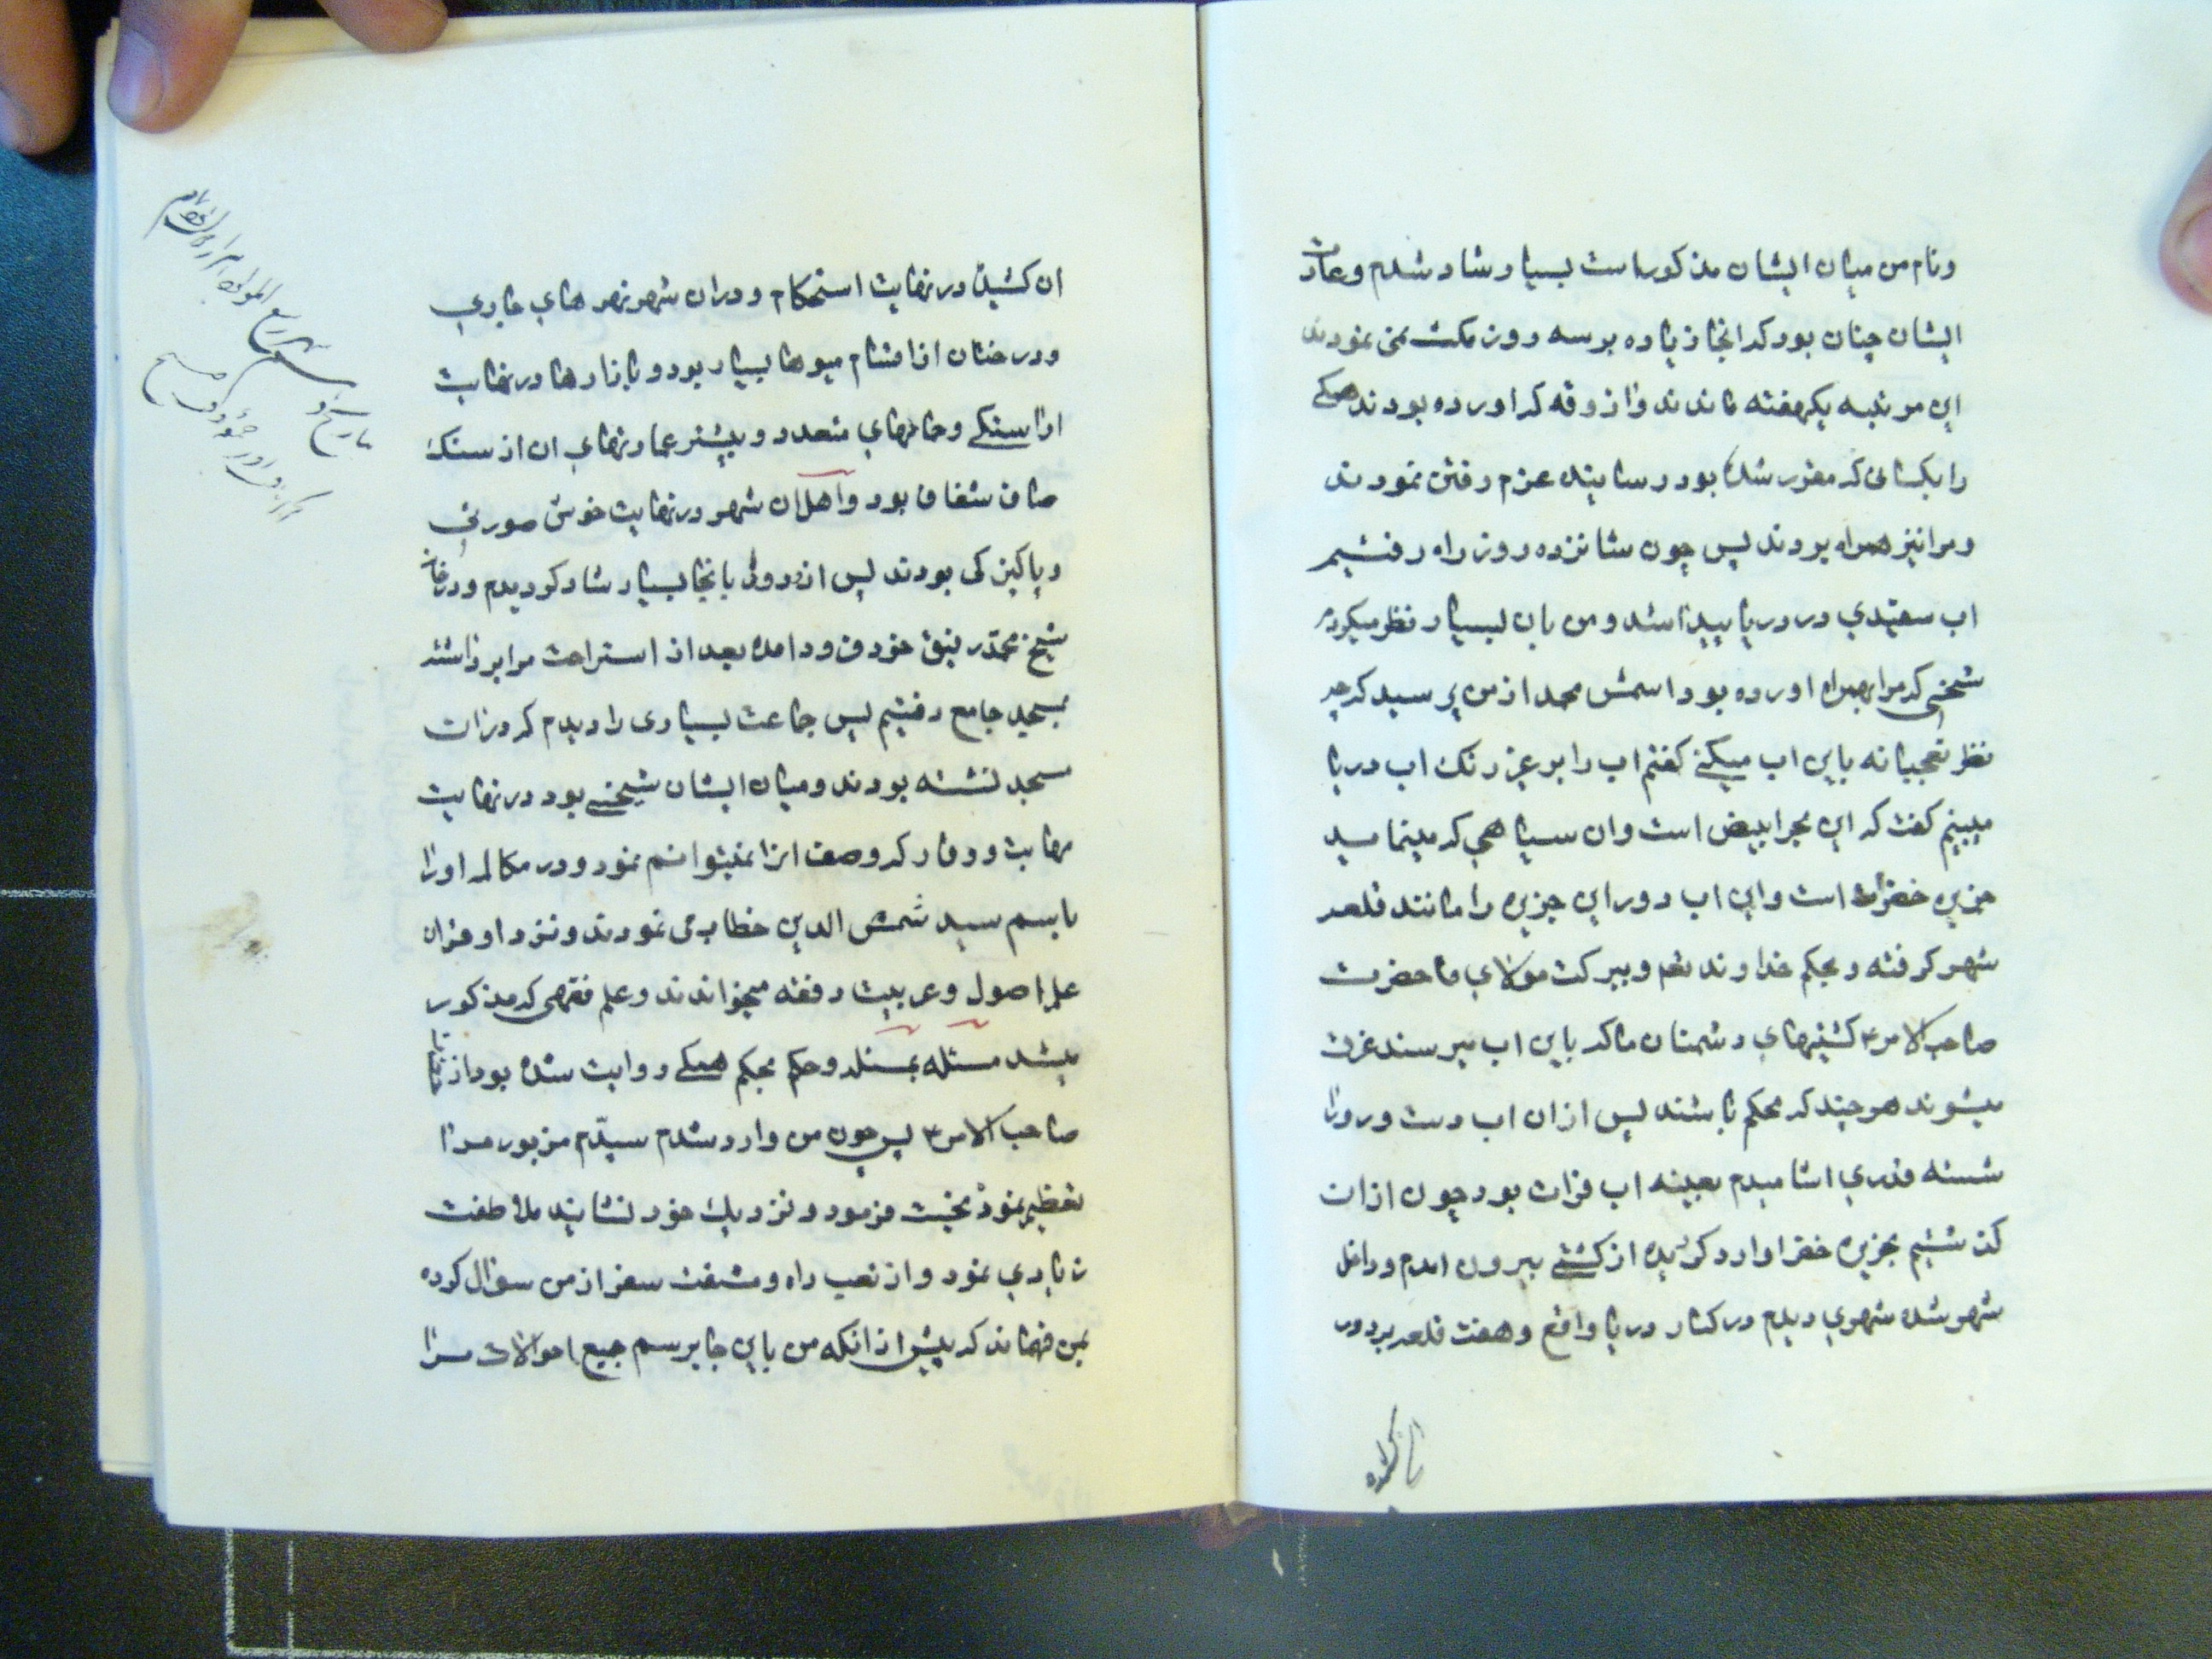 ونام من میان ایشان مذکور است بسیار شاد شدم وعادت
ایشان چنان بود که انجا زیاده بر سه روز مکث نمی نمودند
این مرتبه یکهفته ماندند واذوقه که اورده بودند همکے
را بکسانی که مقرر شده بود رسانیده عزم رفتن نمودند
ومرا نیز همراه بردند پس چون شانزده روز راه رفتیم
اب سفیدی در دریا پیدا شد و من بان بسیار نظر میکردم
شیخی که مرا بهمراه اورده بود اسمش محمد از من پرسید که چه
نظر تعجبانه باین اب میکنے کفتم اب را بر غیر رنک اب دریا
میبینم کفت که این بحر ابیض است وان سیاهی که مینماید
جزیره خضراست واین اب دور این جزیره را مانند قلعه
شهر کرفته و بحکم خداوند تعم وببرکت مولای ما حضرت
صاحب الامر ع کشتیهای دشمنان ما که باین اب میرسند غرق
میشوند هر چند که محکم باشند پس از ان اب دست و رو را
شسته قدری اشامیدم بعینه اب فرات بود چون از ان
کذشتیم بجزیره خضرا وارد کردیده از کشتے بیرون امدم وداخل
شهر شده شهری دیدم در کنار دریا واقع و هفت قلعه بر دور
ان کشیده در نهایت استحکام ودران شهر نهر های جاری
ودرختان از اقسام میوها بسیار بود و بازارها در نهایت
اراستکے وحامهای متعدد وبیشتر عمارتهای ان از سنک
صاف شفاف بود واهل ان شهر در نهایت خوش صورتی
وپاکیزکی بودند پس از ورود بانجا بسیار شاد کردیدم ودر خانه
شیخ محمد رفیق خود فرود امده بعد از استراحت مرا برداشته
بمسجد جامع رفتیم پس جماعت بسیاری را دیدم که در ان
مسجد نشسته بودند ومیان ایشان شیخے بود در نهایت
مهابت و وقار که وصف انرا نمیتوانم نمود و در مکالمه او را
باسم سید شمس الدین خطاب می نمودند و نزد او قران
علم اصول وعربیت و فقه میخواندند وعلم فقهی که مذکور
میشد مسئله بمسئله وحکم بحکم همکے روایت شده بود از
صاحب الامر ع پس چون من وارد شدم سیّدم مزبور مرا
تعظیم نمود تحیت فرمود ونزدیک خود نشانید ملاطفت
زیادی نمود واز تعب راه ومشقت سفر از من سؤال کرده
بمن فهماند که پیش از انکه من باین جا برسم جمیع احوالات مرا